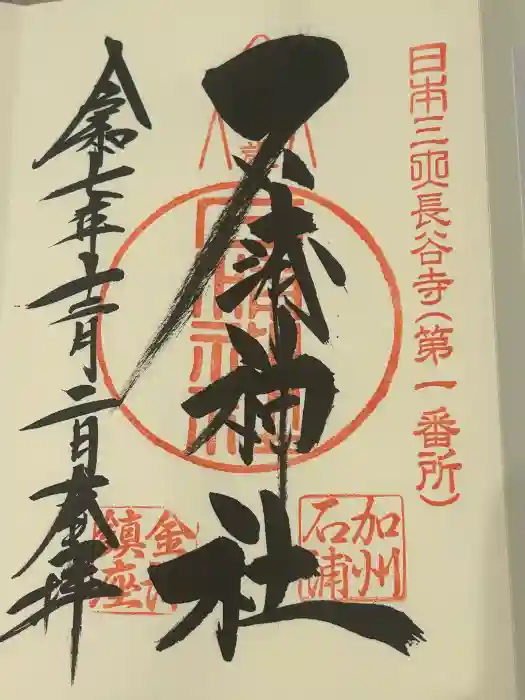 日本三大長谷寺(第一番所)
石浦神社
加州
石浦
令和七年十二月二日奉拝
金沢
鎮座
石浦神社